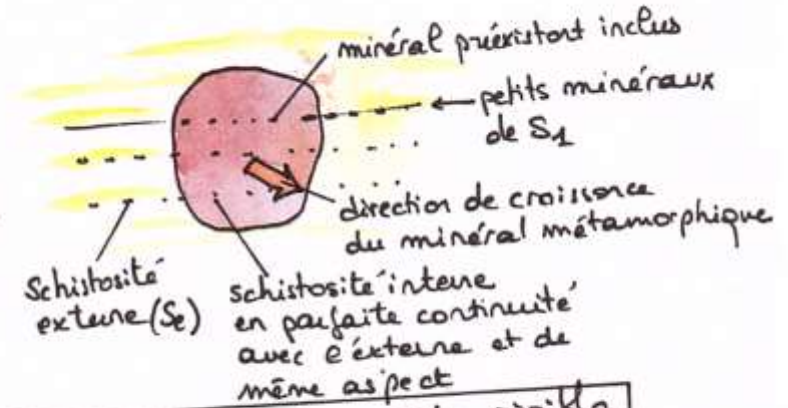 minéral préexistant inclus
petits minéraux
de S1
direction de croissance
du minéral métamorphique
Schistosité
externe (Se)
schistosité interne
en parfaite continuité
avec l'externe et de
même aspect